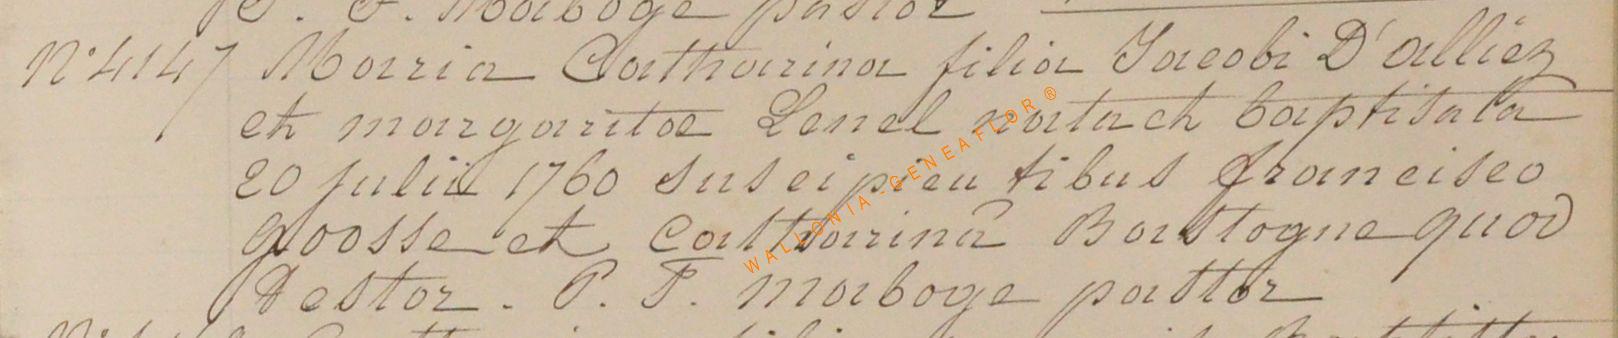 P. F. Maboge pastor
N° 4147 Maria Catharina filia Jacobi D'alliez
et margaritae Lenel nata et baptisata
20 julii 1760 suscipientibus francisco
goosse et Catharinâ Bastogne quod
testor. P. F. maboge pastor
WALLONIA-GENEAFLOR®